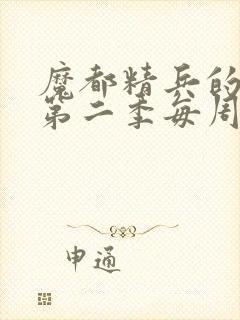 魔都精兵的
第二季每周
申通